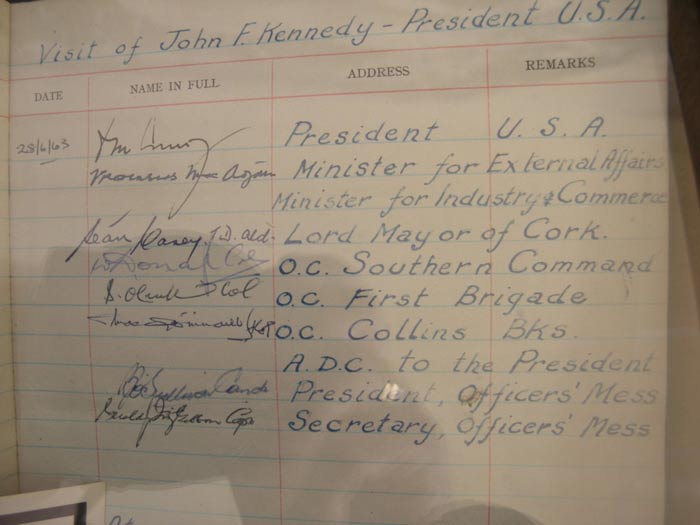 Visit of John F. Kennedy - President U.S.A.
DATE NAME IN FULL ADDRESS REMARKS
28/6/63 President U.S.A.
Minister for External Affairs
Minister for Industry & Commerce
Seán Casey, T.D. ald. Lord Mayor of Cork.
Col O.C. Southern Command
Col O.C. First Brigade
O.C. Collins Bks.
A.D.C. to the President
Comdt President, Officers' Mess
Capt Secretary, Officers' Mess